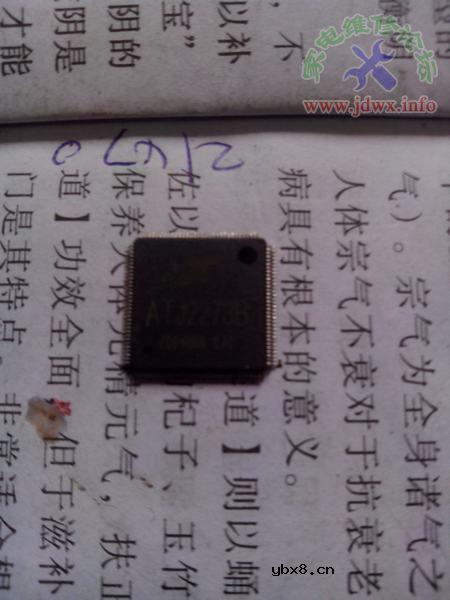 家电维修论坛
www.jdwx.info
不
以补
宝”
阴的
阴是
才能
气）。宗气为全身诸气之
人体宗气不衰对于抗衰老
病具有根本的意义。
道】则以蛹
佐以
杞子、玉竹
保养人体元精元气，扶正
道】功效全面
但于滋补
门是其特点。非常适合想
ATJ2273B
ybx8.cn